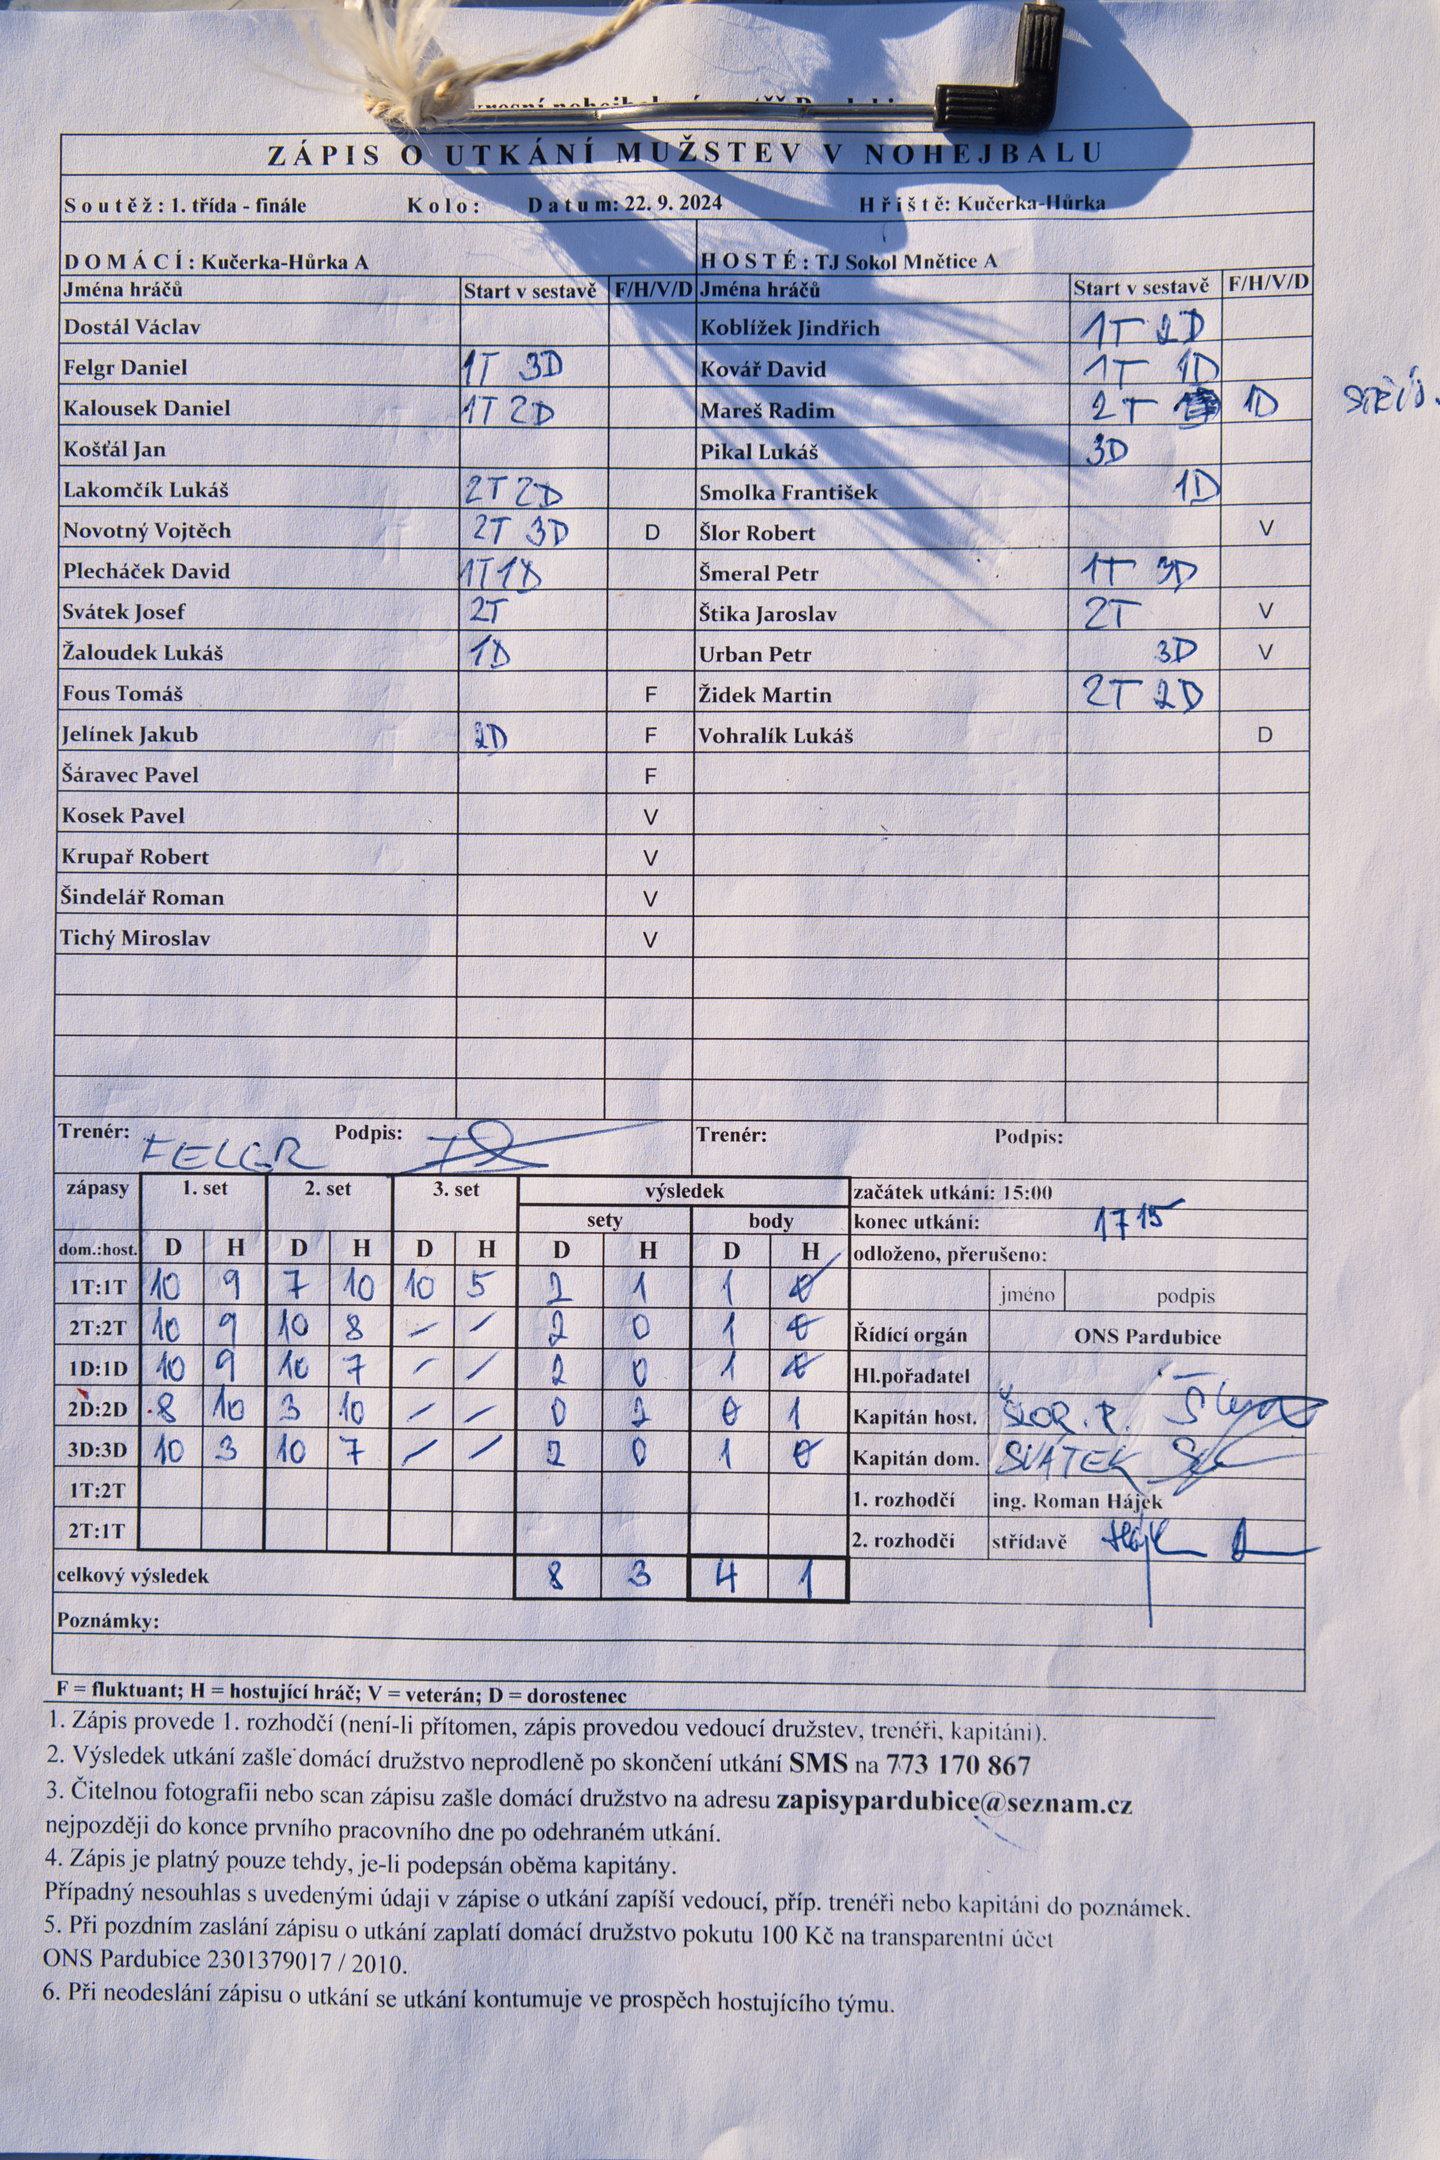 ZÁPIS O UTKÁNÍ MUŽSTEV V NOHEJBALU
Soutěž: 1. třída - finále Kolo: Datum: 22. 9. 2024 Hřiště: Kučerka-Hůrka
DOMÁCÍ: Kučerka-Hůrka A HOSTÉ: TJ Sokol Mnětice A
Jména hráčů Start v sestavě F/H/V/D Jména hráčů Start v sestavě F/H/V/D
Dostál Václav Koblížek Jindřich 1T 2D
Felgr Daniel 1T 3D Kovář David 1T 1D
Kalousek Daniel 1T 2D Mareš Radim 2T 1D
Košťál Jan Pikal Lukáš 3D
Lakomčík Lukáš 2T 2D Smolka František 1D
Novotný Vojtěch 2T 3D D Šlor Robert V
Plecháček David 1T 1D Šmeral Petr 1T 3D
Svátek Josef 2T Štika Jaroslav 2T V
Žaloudek Lukáš 1D Urban Petr 3D V
Fous Tomáš F Židek Martin 2T 2D
Jelínek Jakub F Vohralík Lukáš D
Šáravec Pavel F
Kosek Pavel V
Krupař Robert V
Šindelář Roman V
Tichý Miroslav V
Trenér: FELGR Podpis: Trenér: Podpis:
zápasy 1. set 2. set 3. set výsledek začátek utkání: 15:00
sety body konec utkání: 17 15
dom.:host. D H D H D H D H D H odloženo, přerušeno:
1T:1T 10 9 7 10 10 5 2 1 1 0 jméno podpis
2T:2T 10 9 10 8 – – 2 0 1 0 Řídící orgán ONS Pardubice
1D:1D 10 9 10 7 – – 2 0 1 0 Hl.pořadatel
2D:2D 8 10 3 10 – – 0 2 0 1 Kapitán host. ŠLOR. R.
3D:3D 10 3 10 7 – – 2 0 1 0 Kapitán dom. SVÁTEK
1T:2T 1. rozhodčí ing. Roman Hájek
2T:1T 2. rozhodčí střídavě
celkový výsledek 8 3 4 1
Poznámky:
F = fluktuant; H = hostující hráč; V = veterán; D = dorostenec
1. Zápis provede 1. rozhodčí (není-li přítomen, zápis provedou vedoucí družstev, trenéři, kapitáni).
2. Výsledek utkání zašle domácí družstvo neprodleně po skončení utkání SMS na 773 170 867
3. Čitelnou fotografii nebo scan zápisu zašle domácí družstvo na adresu zapisypardubice@seznam.cz
nejpozději do konce prvního pracovního dne po odehraném utkání.
4. Zápis je platný pouze tehdy, je-li podepsán oběma kapitány.
Případný nesouhlas s uvedenými údaji v zápise o utkání zapíší vedoucí, příp. trenéři nebo kapitáni do poznámek.
5. Při pozdním zaslání zápisu o utkání zaplatí domácí družstvo pokutu 100 Kč na transparentní účet
ONS Pardubice 2301379017 / 2010.
6. Při neodeslání zápisu o utkání se utkání kontumuje ve prospěch hostujícího týmu.